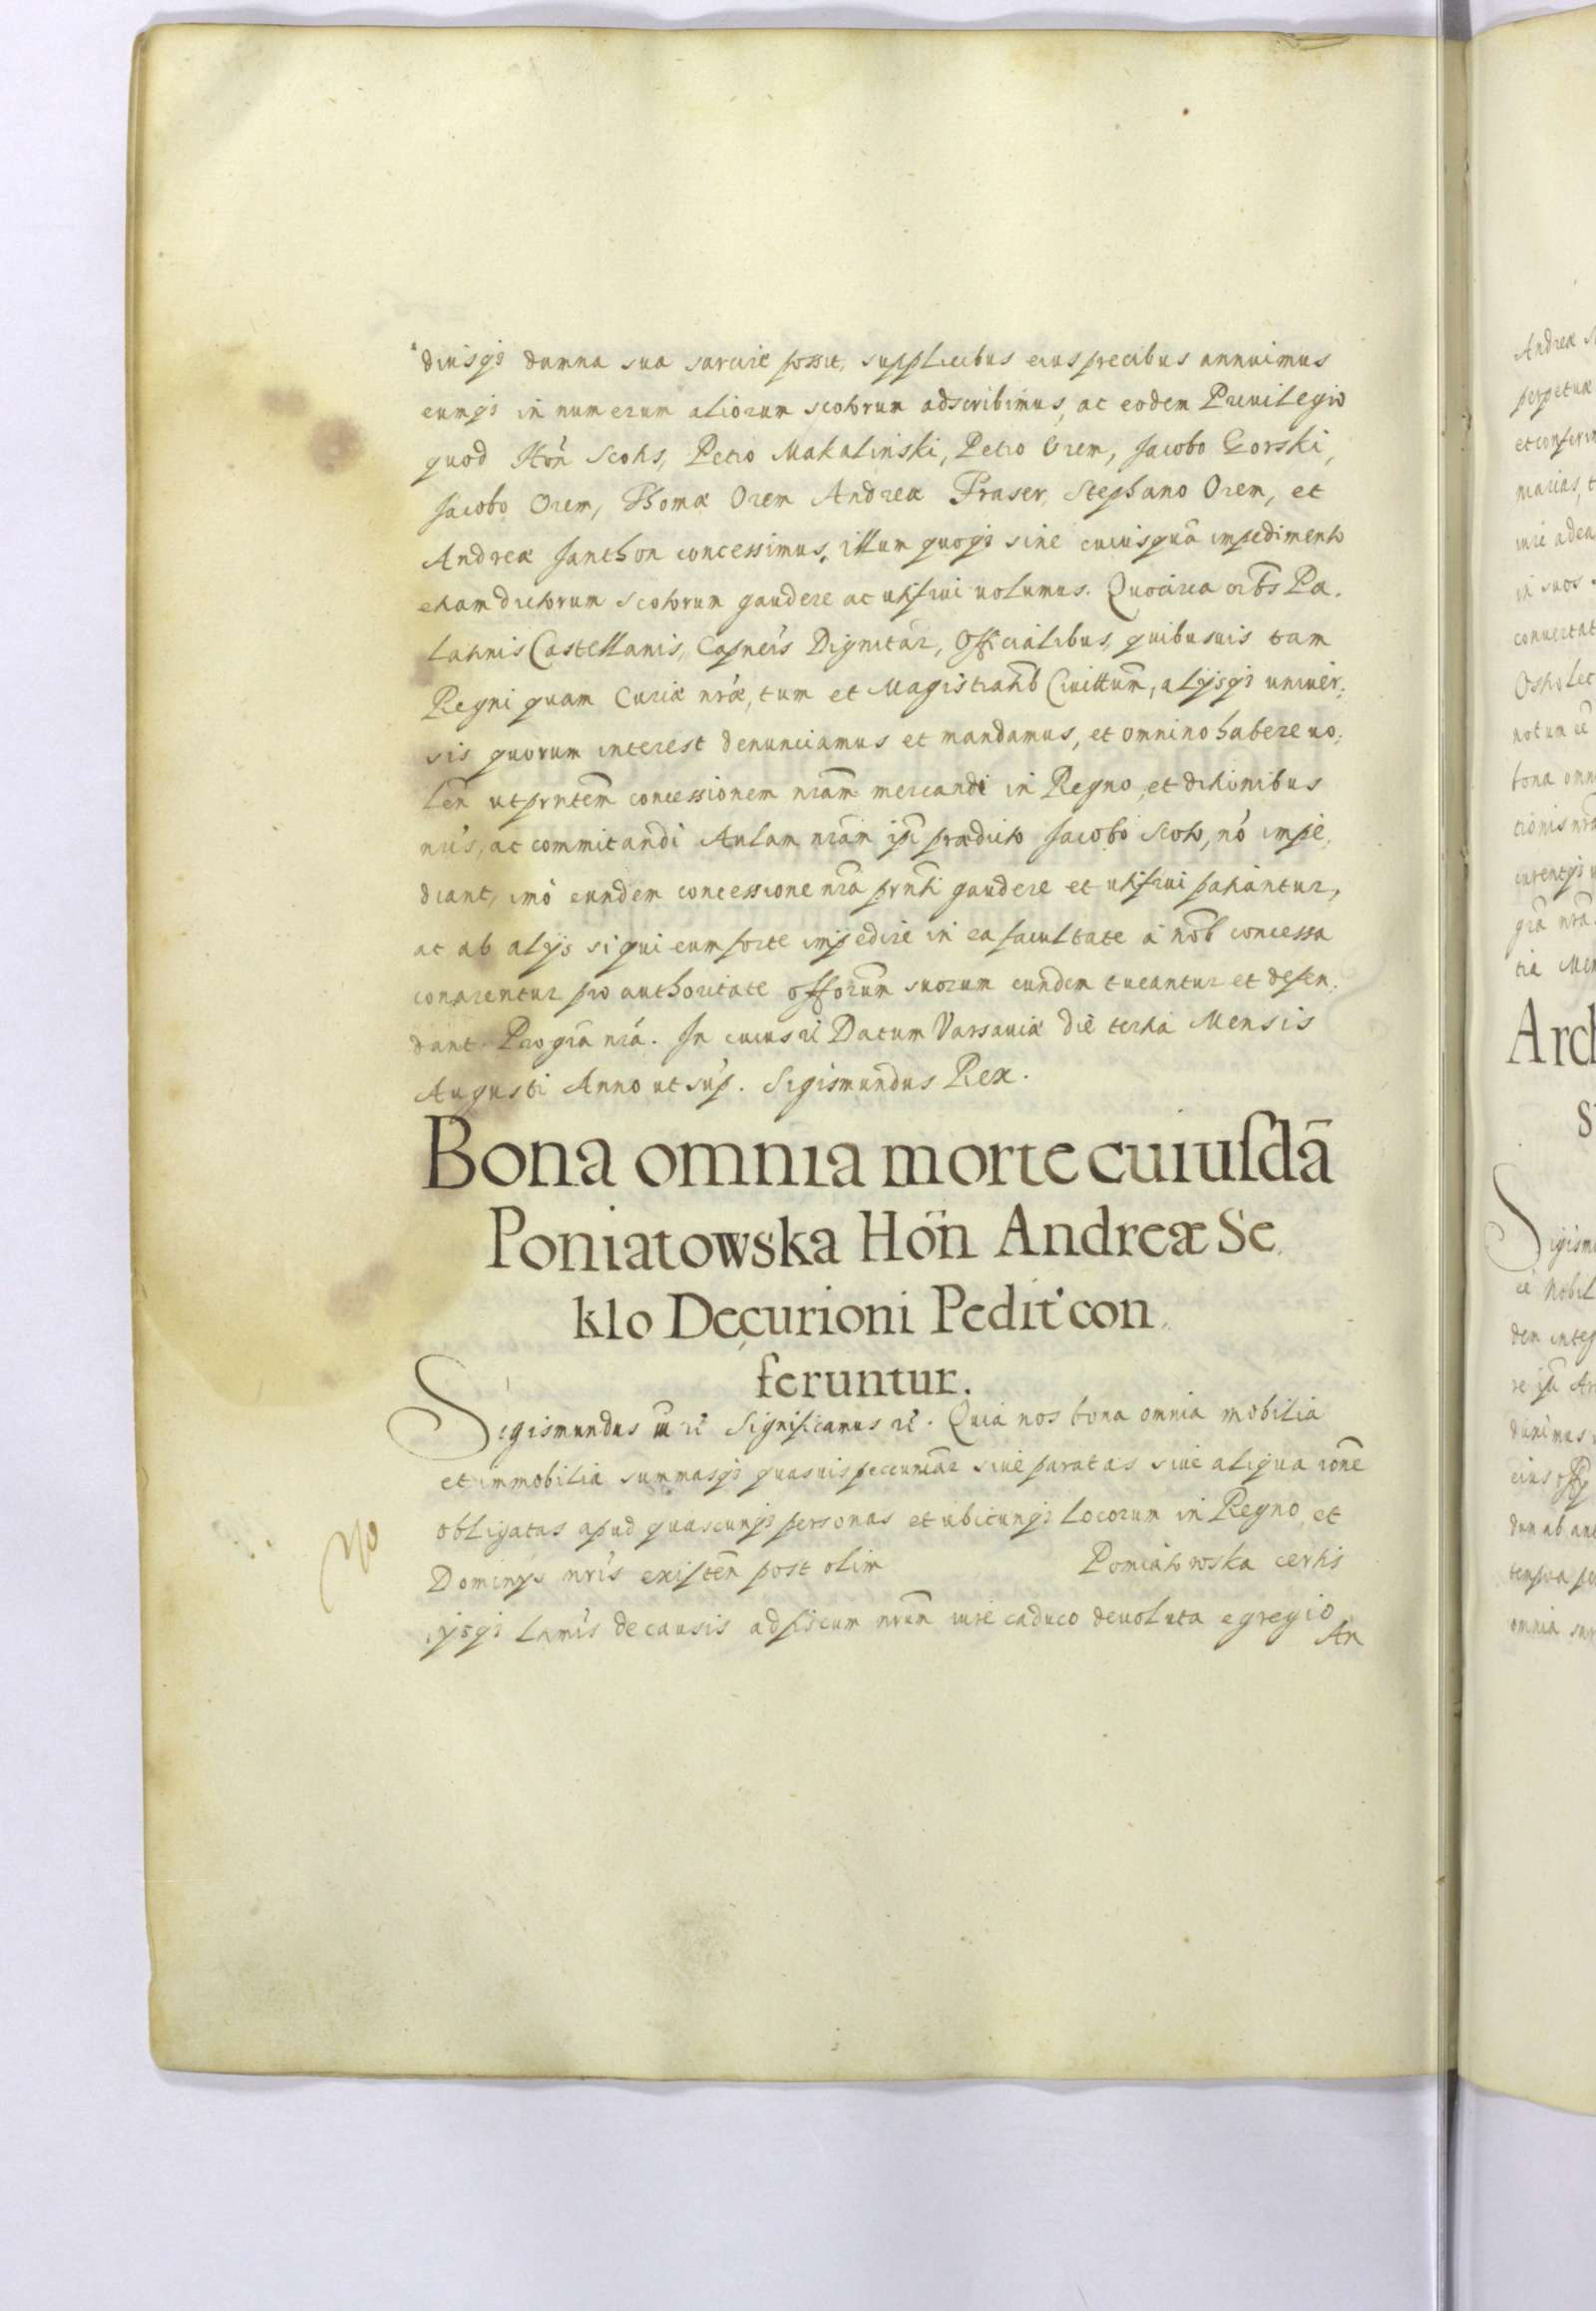 diuisq3 damna sua sarcire possit, supplicibus eius precibus annuimus
eumq3 in numerum aliorum scotorum adscribimus, ac eodem Priuilegio
quod Hon̄ Scotis, Petro Makalinski, Petro Orem, Jacobo Gorski,
Jacobo Orem, Thomæ Orem Andreæ Fraser, Stephano Orem, et
Andreæ Janthon concessimus, illum quoq3 sine cuiusquā impedimento
etiam dictorum scotorum gaudere ac utifrui uolumus. Quocirca oībs Pa.
latinis Castellanis, Capneis Dignitar, Officialibus, quibusuis tam
Regni quam Curiæ nræ, tum et Magistratib Ciuittum, alijsq3 uniuer;
sis quorum interest denunciamus et mandamus, et omnino habere uo;
len̄ ut prntem concessionem nram mercandi in Regno et ditionibus
nris, ac commitandi Aulam nram ipi prædicto Jacobo Scoto, nō impe,
diant, imò eundem concessione nra prnti gaudere et utifrui patiantur,
ac ab alijs si qui eum forte impedire in ea facultate à nob concessa
conarentur pro authoritate offorum suorum eundem tueantur et defen,
dant. Pro gra nra. In cuius rei Datum Varsauiæ die tertia Mensis
Augusti Anno ut sup. Sigismundus Rex.
Bona omnia morte cuiuſdā
Poniatowska Hon̄ Andreæ Se
klo Decurioni Pedit con
feruntur.
Sigismundus III rē Significamus rē. Quia nos bona omnia mobilia
et immobilia summasq3 quasuis pecuniar siue paratas siue aliqua rōne
obligatas apud quascunq3 personas et ubicunq3 locorum in Regno et
Dominys nris existen̄ post olim Poniatowska certis
ijsq3 ltimis de causis ad fiscum nrum iure caduco deuoluta egregio
An
No
Andreæ
perpetuæ
in suos
conuertat
notum
bona omn
tionis nra
gra nra
Arch
S
Sigism
nobil
dem integ
dunimus
omnia